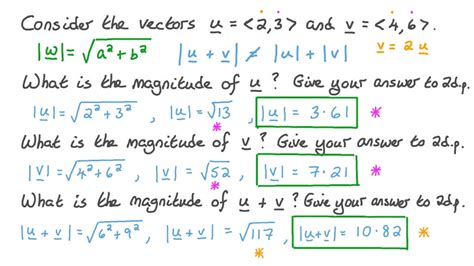 Consider the vectors u = <2,3> and v = <4,6>.
|w| = √a² + b² |u + v| ≠ |u| + |v| v = 2u
What is the magnitude of u? Give your answer to 2d.p.
|u| = √2² + 3² , |u| = √13 , |u| = 3.61 *
*
What is the magnitude of v? Give your answer to 2d.p.
|v| = √4² + 6² , |v| = √52 , |v| = 7.21 *
*
What is the magnitude of u + v? Give your answer to 2d.p.
|u + v| = √6² + 9² , |u + v| = √117 , |u+v| = 10.82 *
*